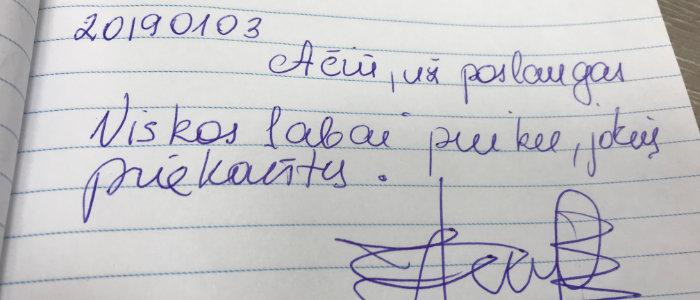 20190103
Ačiū, už paslaugas
Viskas labai puiku, jokių
priekaištų.